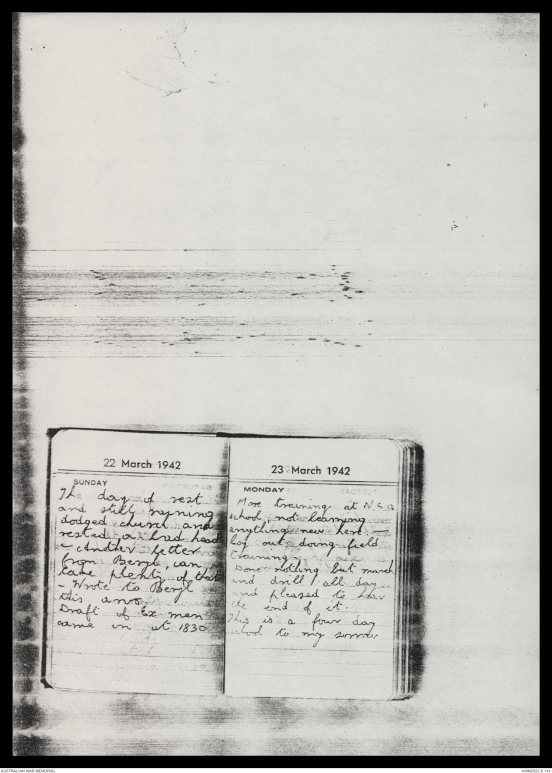 22 March 1942
SUNDAY
The day of rest
and still rayning
dodged church and
rested a bad head
- Another letter
from Beryl, can
take plenty of that
- Wrote to Beryl
this
Draft of Ex men
came in at 1830
23 March 1942
MONDAY
More training at N.C.O
school, not learning
anything new here.
boy out doing field
training.
Done nothing but march
and drill all day
and pleased to
the end of it.
This is a four day
school to my sorrow
AUSTRALIAN WAR MEMORIAL